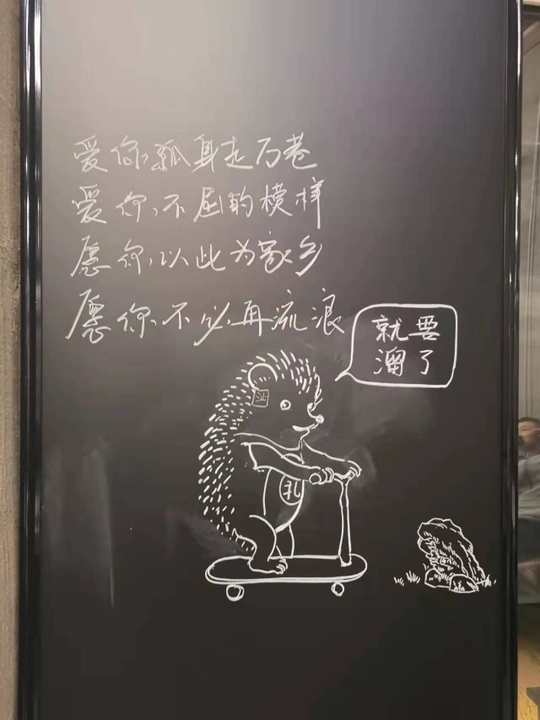 爱你孤身走万巷
爱你不屈的模样
愿你以此为家乡
愿你不必再流浪
就要
溜了